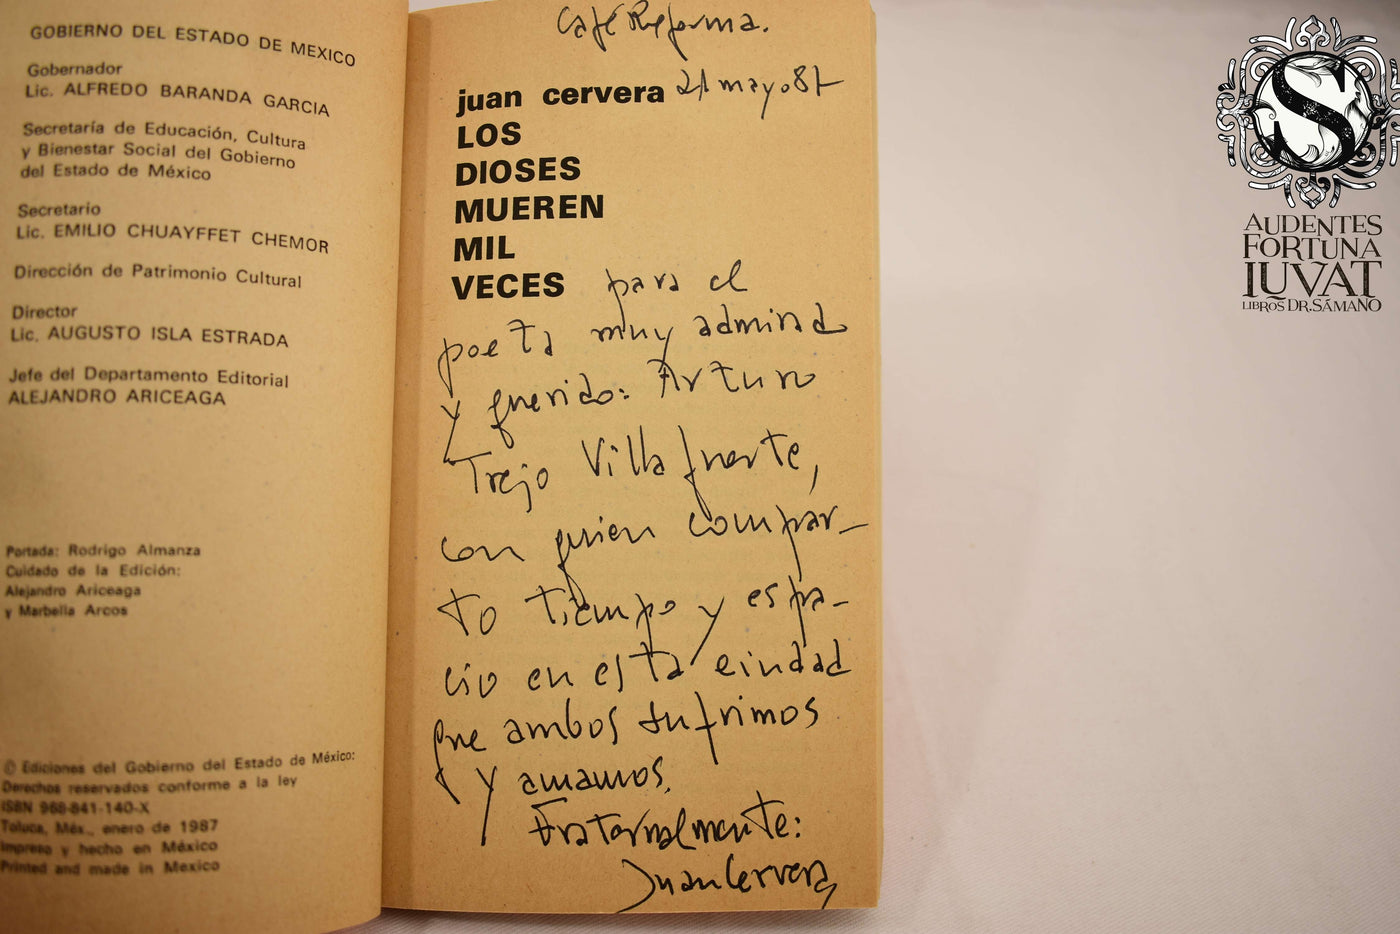 GOBIERNO DEL ESTADO DE MEXICO
Gobernador
Lic. ALFREDO BARANDA GARCIA
Secretaría de Educación, Cultura
y Bienestar Social del Gobierno
del Estado de México
Secretario
Lic. EMILIO CHUAYFFET CHEMOR
Dirección de Patrimonio Cultural
Director
Lic. AUGUSTO ISLA ESTRADA
Jefe del Departamento Editorial
ALEJANDRO ARICEAGA
Portada: Rodrigo Almanza
Cuidado de la Edición:
Alejandro Ariceaga
y Marbella Arcos
© Ediciones del Gobierno del Estado de México:
Derechos reservados conforme a la ley
ISBN 968-841-140-X
Toluca, Méx., enero de 1987
Impreso y hecho en México
Printed and made in Mexico
Café Reforma.
21 mayo 87
juan cervera
LOS
DIOSES
MUEREN
MIL
VECES
para el
poeta muy admirado
y querido: Arturo
Trejo Villafuerte,
con quien compar-
to tiempo y espa-
cio en esta ciudad
que ambos sufrimos
y amamos.
Fraternalmente:
Juan Cervera
S
AUDENTES
FORTUNA
IUVAT
LIBROS DR. SÁMANO